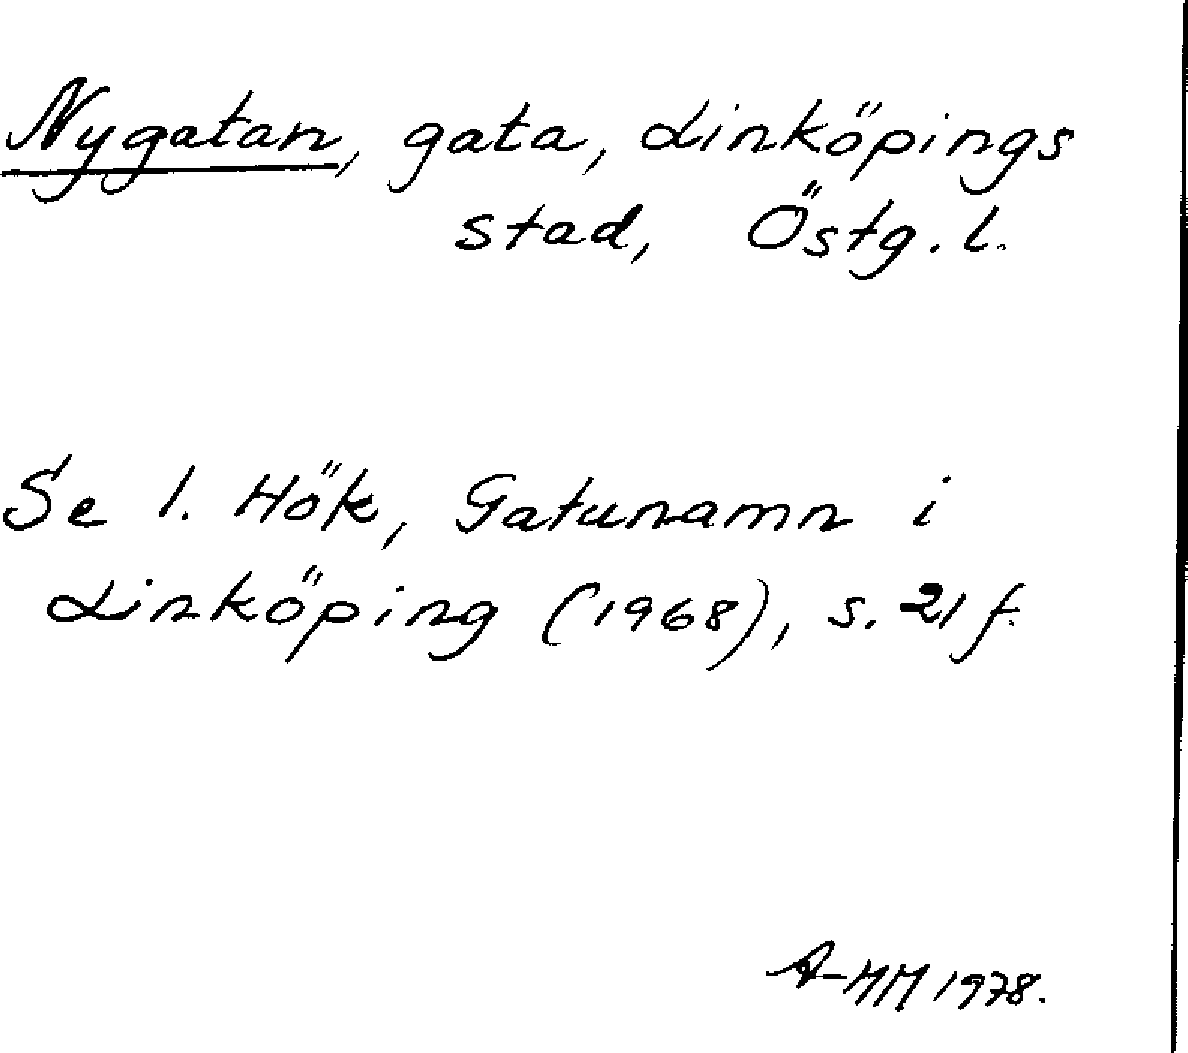 Nygatan, gata, Linköpings
stad, Östg. l.
Se I. Hök, Gatunamn i
Linköping (1968), s. 21 f.
A-MM 1978.